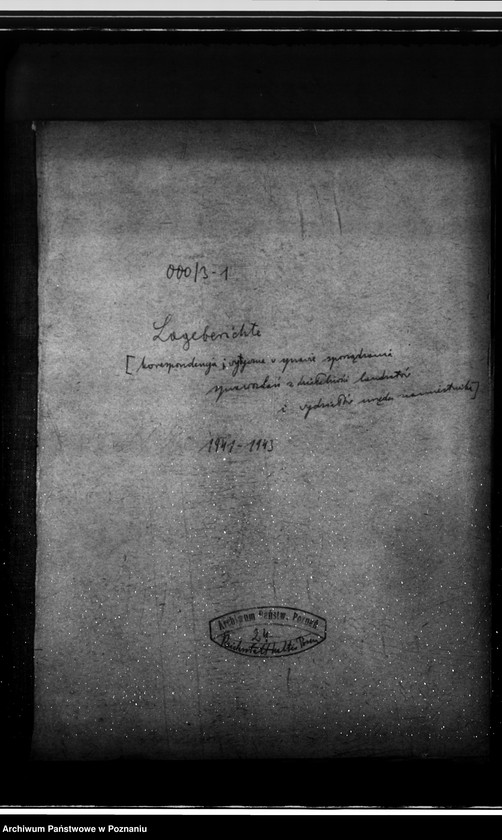 000/3-1
Lageberichte
[korespondencja i wytyczne w sprawie sporządzania
sprawozdań z działalności landratów
i wydziałów urzędu namiestnika]
1941-1943
Archiwum Państw. Poznań
24
Reichsstatthalter Posen
Archiwum Państwowe w Poznaniu